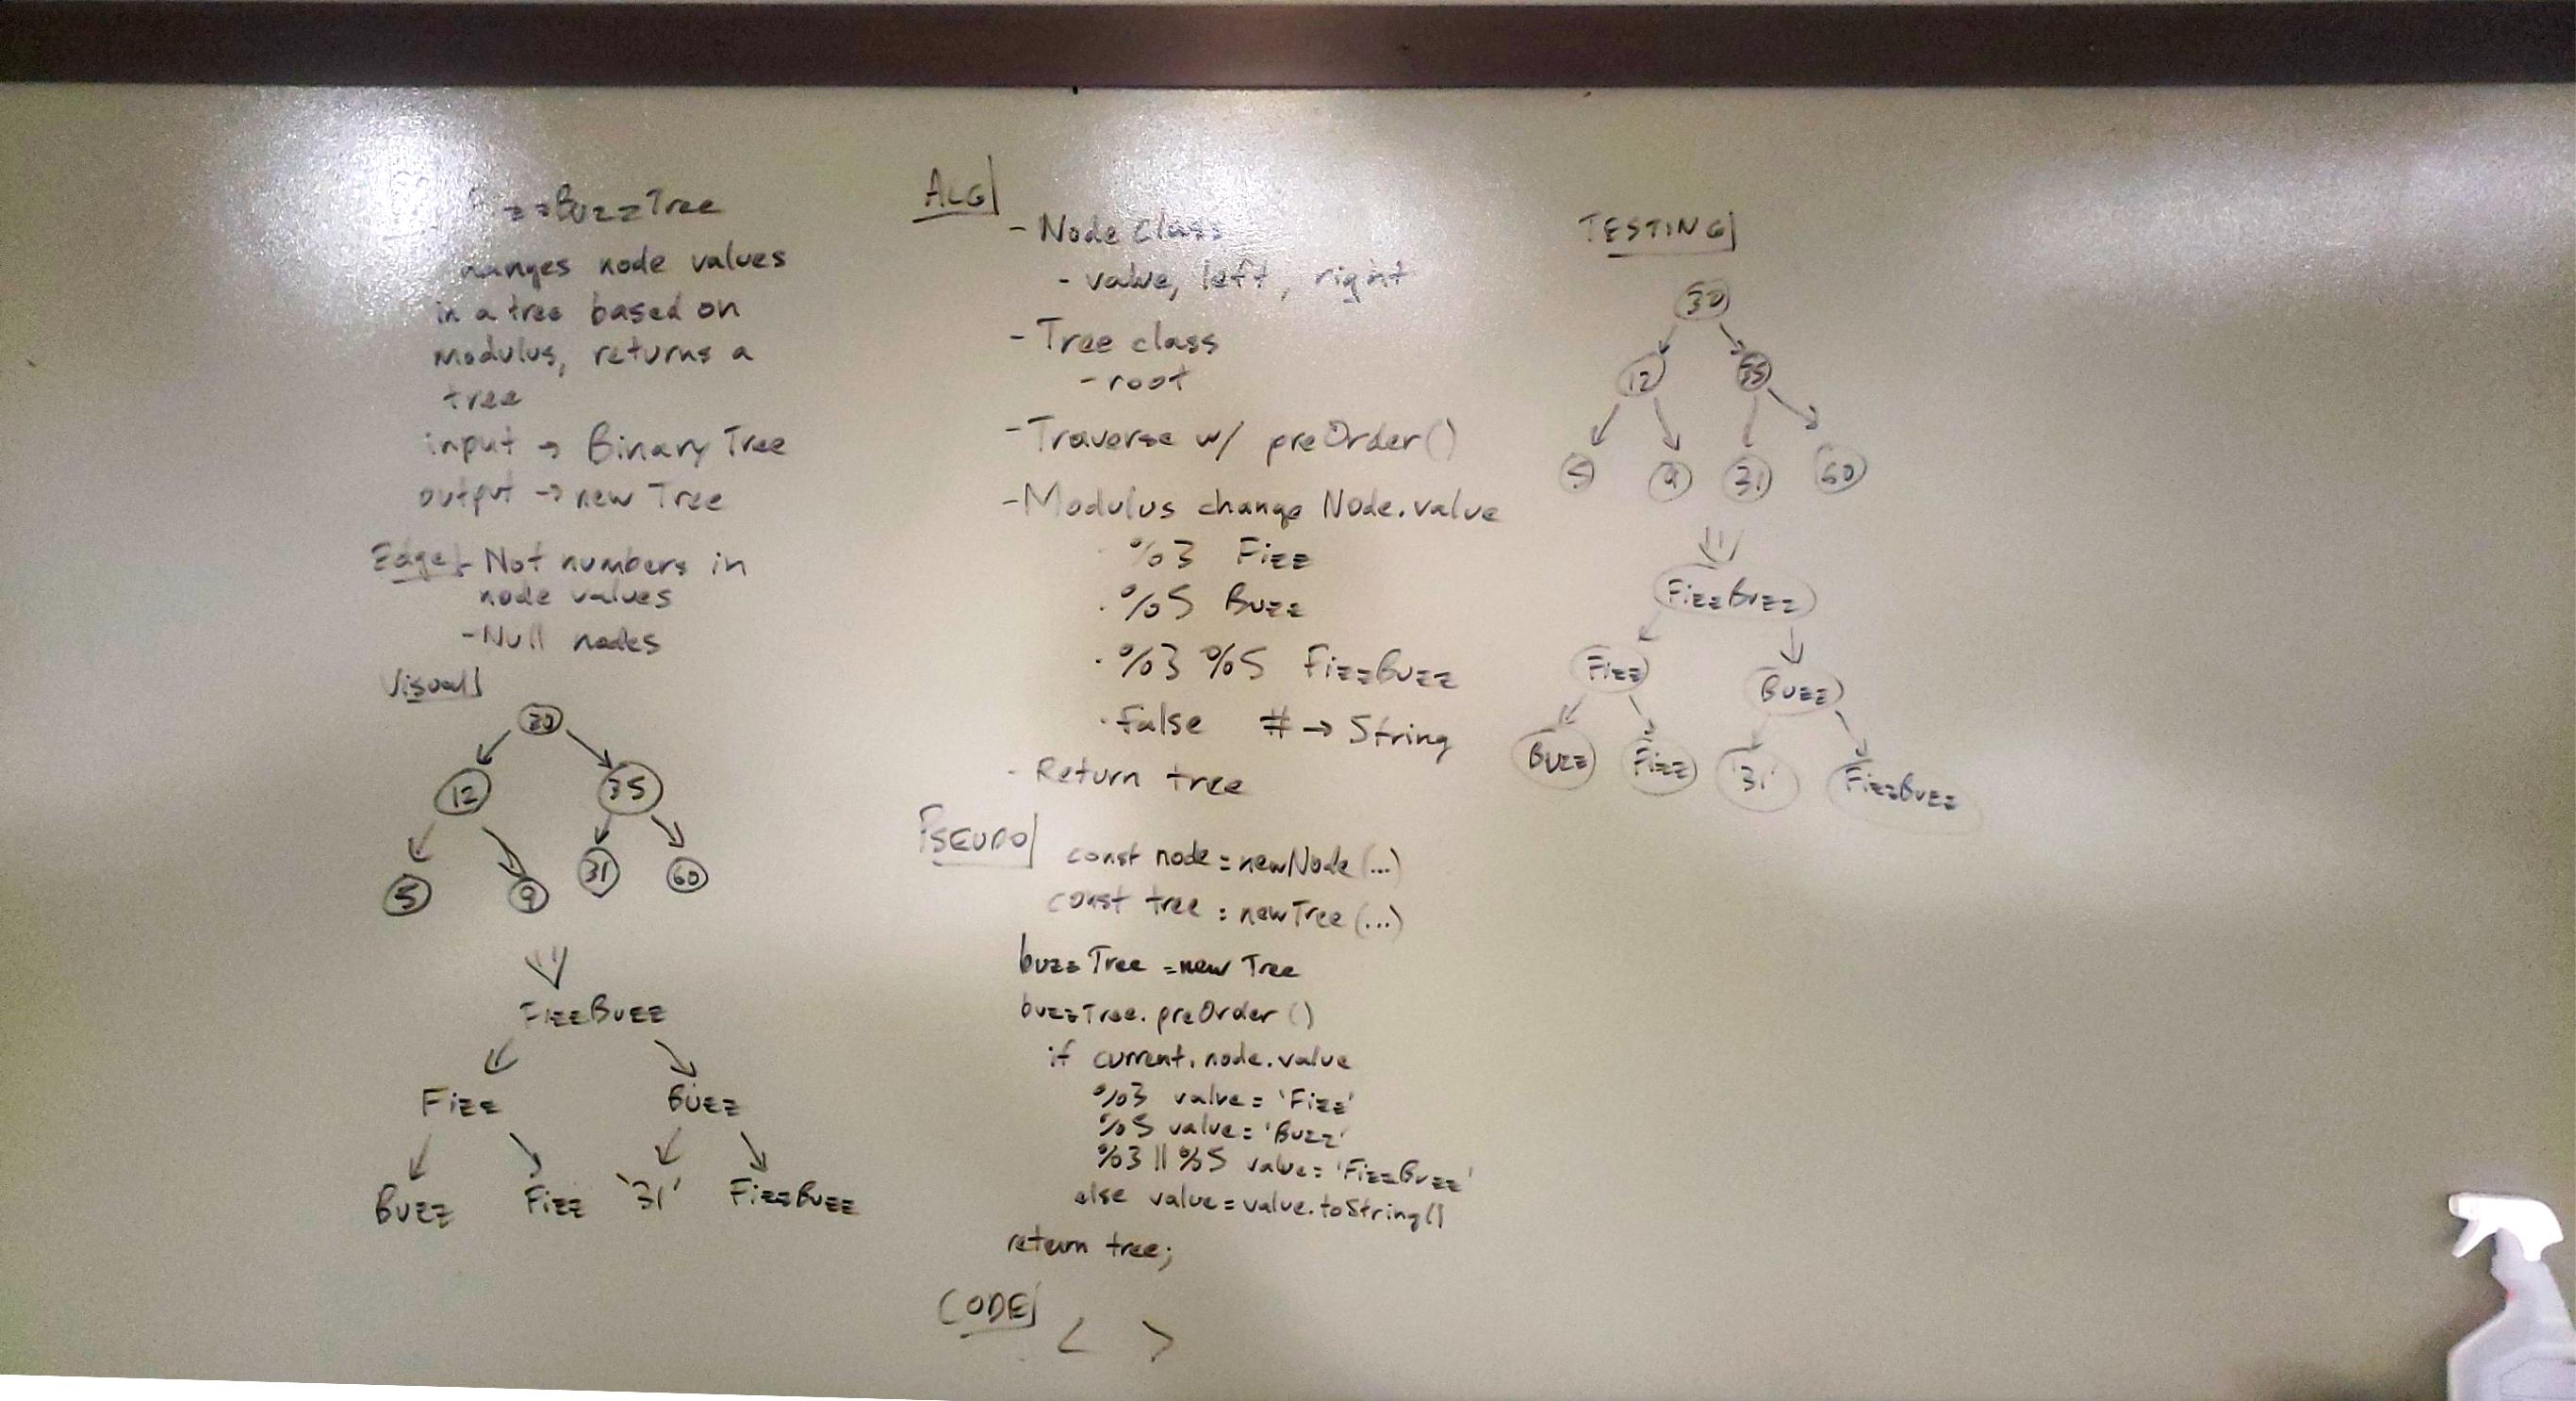 zzBuzzTree
anges node values
in a tree based on
Modulus, returns a
tree
input → Binary Tree
output → new Tree
Edge - Not numbers in
node values
- Null nodes
Visual
30
12 35
5 9 31 60
FizzBuzz
Fizz Buzz
Buzz Fizz '31' FizzBuzz
ALG
- Node Class
- value, left, right
- Tree class
- root
- Traverse w/ preOrder()
- Modulus change Node.value
· %3 Fizz
· %5 Buzz
· %3 %5 FizzBuzz
· false # → String
- Return tree
PSEUDO
const node = newNode(...)
const tree = newTree(...)
buzzTree = new Tree
buzzTree.preOrder()
if current.node.value
%3 value = 'Fizz'
%5 value = 'Buzz'
%3 || %5 value = 'FizzBuzz'
else value = value.toString()
return tree;
CODE
< >
TESTING
30
12 35
5 9 31 60
FizzBuzz
Fizz Buzz
Buzz Fizz '31' FizzBuzz